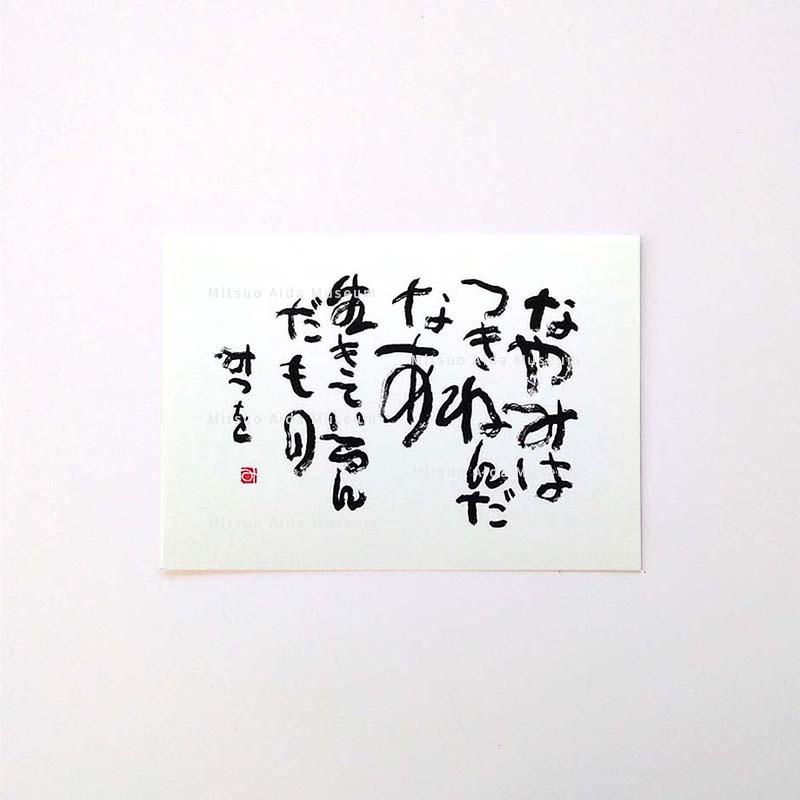 なやみは
つきねんだ
なあ
生きているん
だもの
みつを
Mitsuo Aida Museum
Mitsuo Aida Museum
Mitsuo Aida Museum
Mitsuo Aida Museum
Mitsuo Aida Museum
Mitsuo Aida Museum